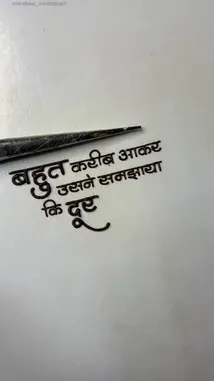 बहुत करीब आकर
उसने समझाया
कि दूर